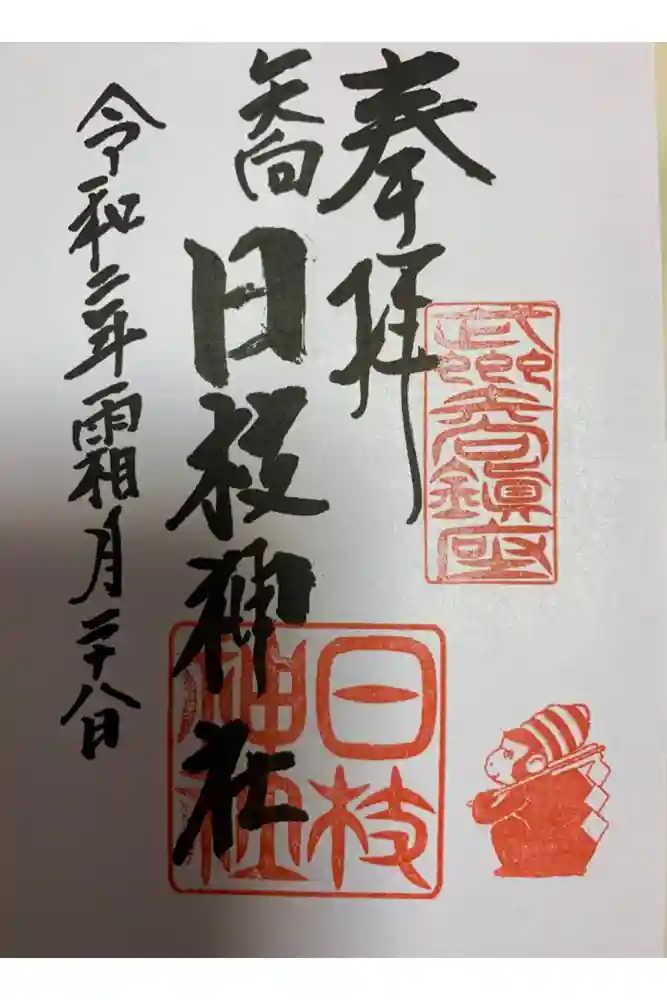 奉拝
武州矢向鎭座
矢向
日枝神社
日枝神社
令和二年霜月二十八日